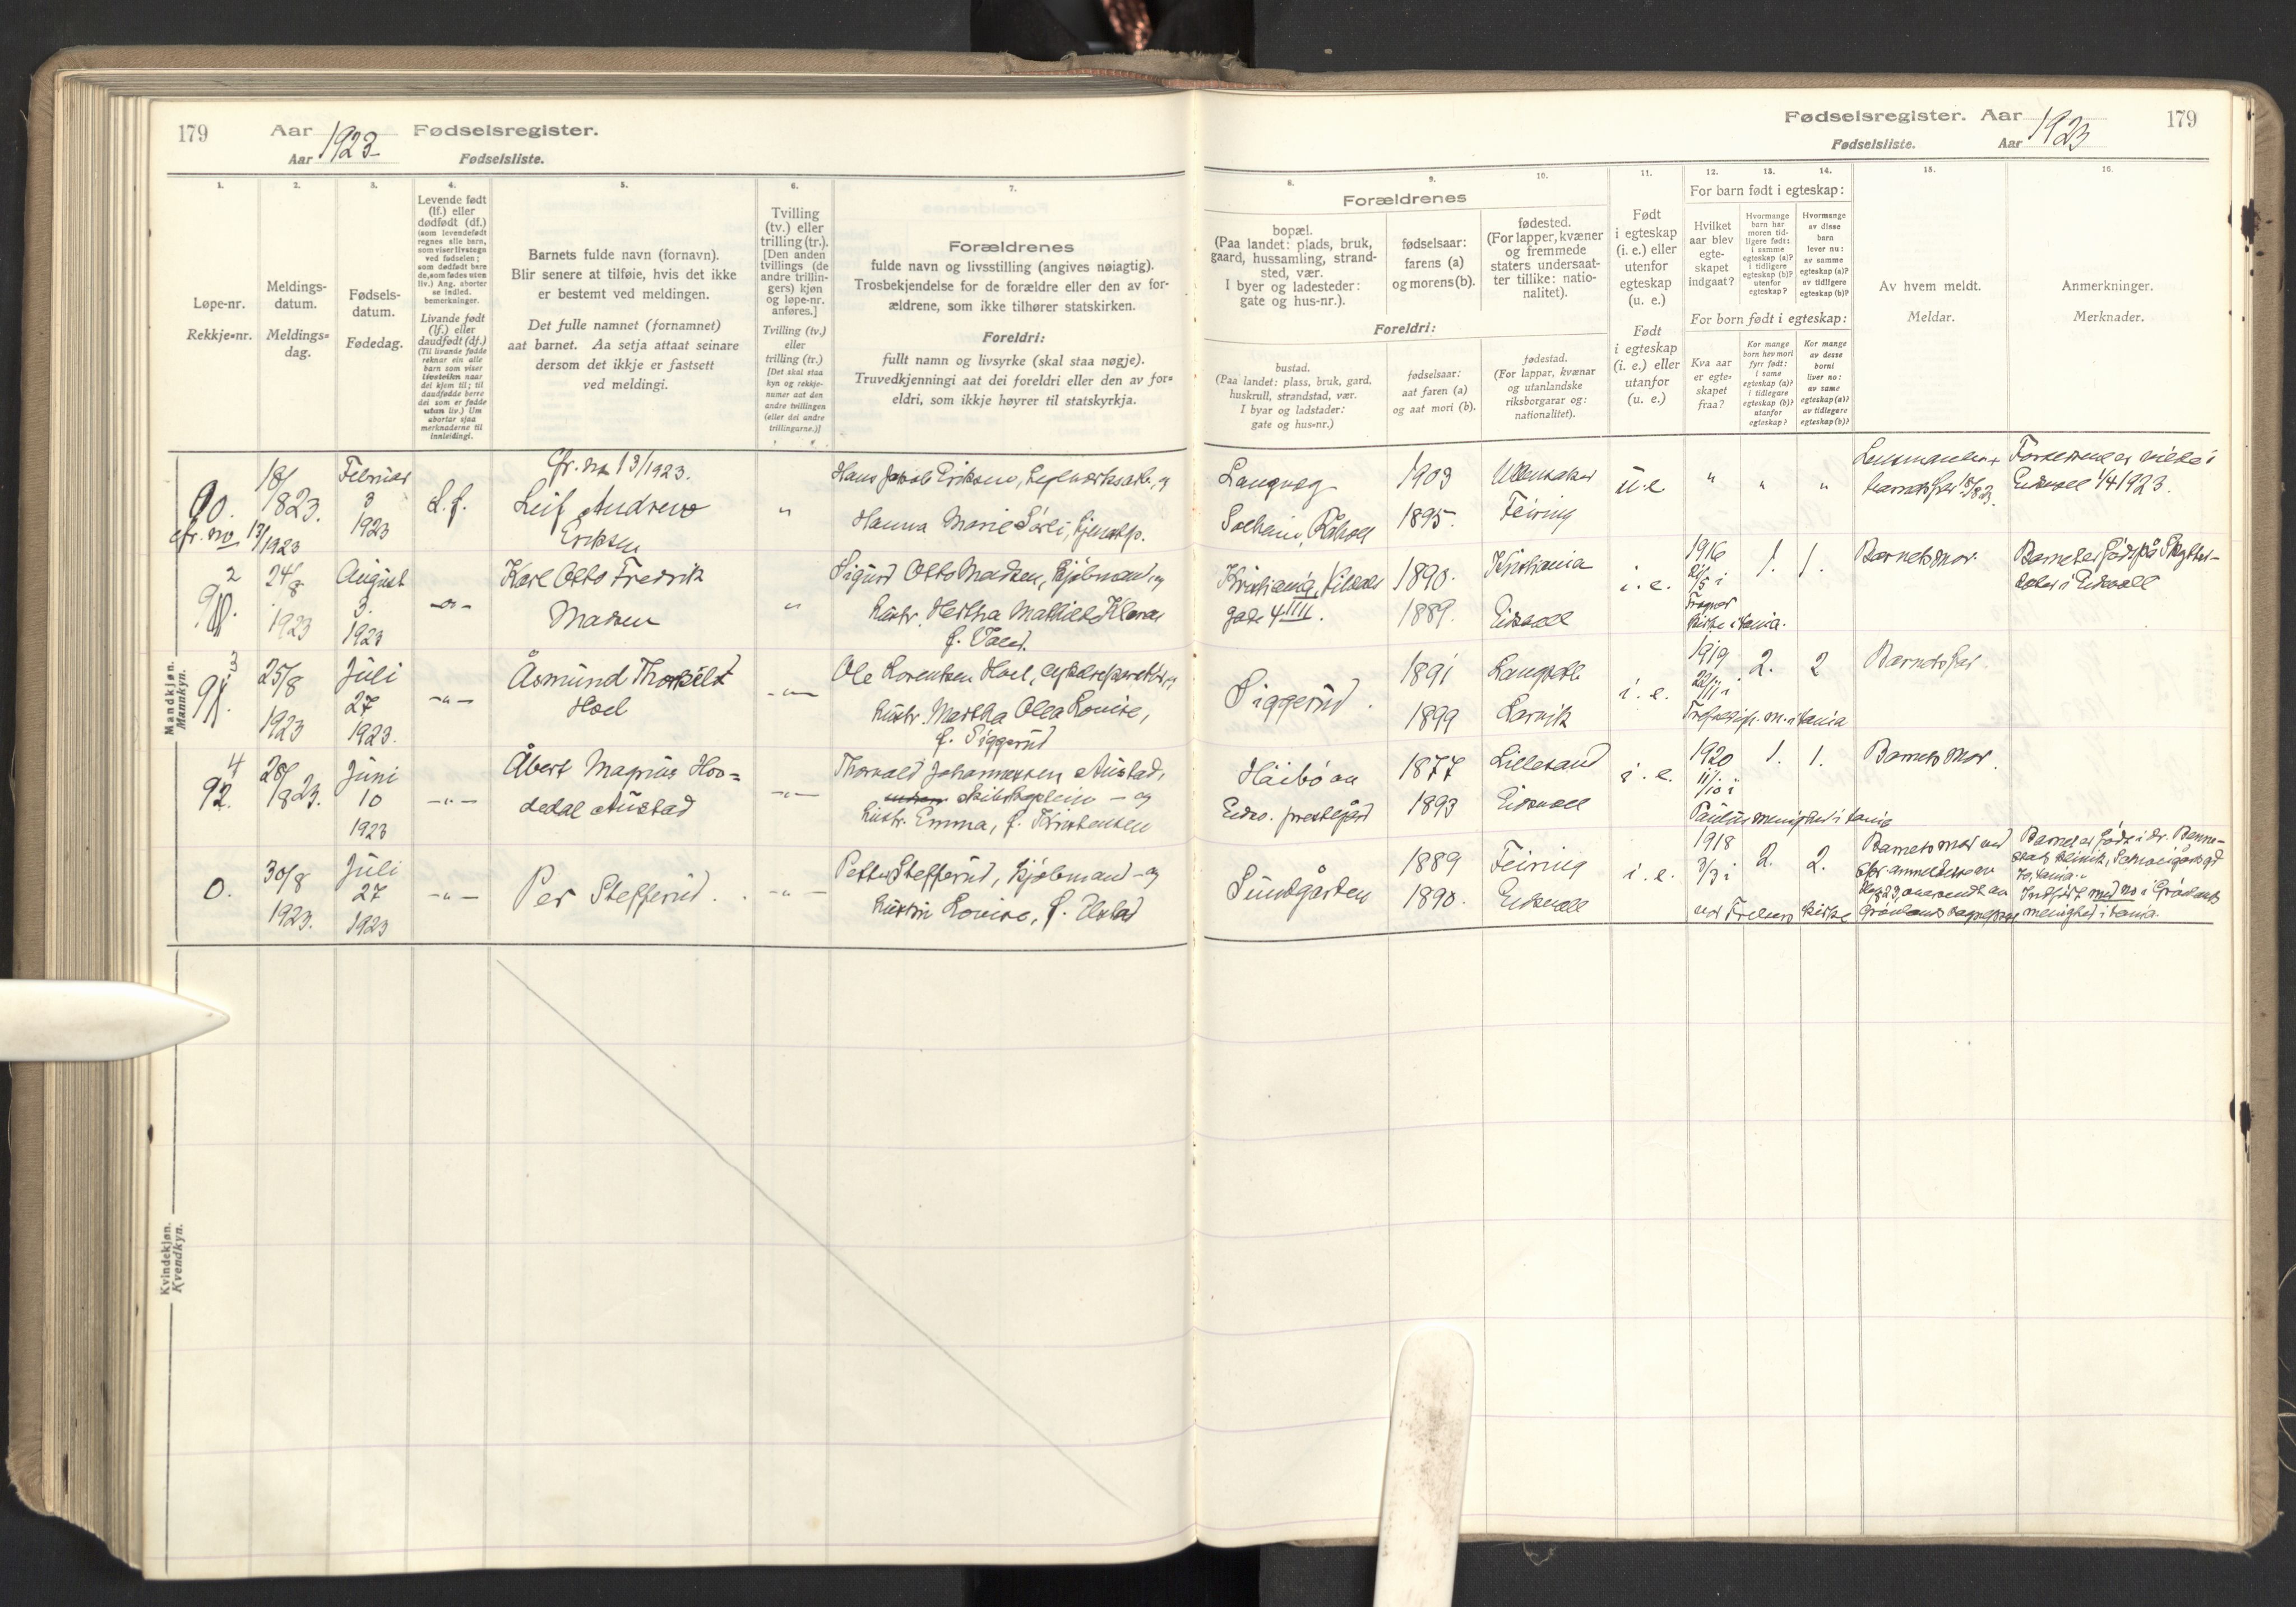 179
Aar 1923
Fødselsregister.
Aar
Fødselsliste.
1.
Løpe-nr.
Rekkje-nr.
2.
Meldings-
datum.
Meldings-
dag.
3.
Fødsels-
datum.
Fødedag.
4.
Levende født
(lf.) eller
dødfødt (df.)
(som levendefødt
regnes alle barn,
som viser livstegn
ved fødselen;
som dødfødt bare
de, som fødes uten
liv.) Ang. aborter
se indled.
bemerkninger.
Livande født
(lf.) eller
daudfødt (df.)
(Til livande fødde
reknar ein alle
barn som viser
livsteikn naar
dei kjem til; til
daudfødde berre
dei som er fødde
utan liv.) Um
abortar sjaa
merknaderne til
innleidingi.
5.
Barnets fulde navn (fornavn).
Blir senere at tilføie, hvis det ikke
er bestemt ved meldingen.
Det fulle namnet (fornamnet)
aat barnet. Aa setja attaat seinare
dersom det ikkje er fastsett
ved meldingi.
6.
Tvilling
(tv.) eller
trilling (tr.).
[Den anden
tvillings (de
andre trillin-
gers) kjøn
og løpe-nr.
anføres.]
Tvilling (tv.)
eller
trilling (tr.)
[Det skal staa
kyn og rekkje-
numer aat den
andre tvillingen
(eller dei andre
trillingarne.)]
7.
Forældrenes
fulde navn og livsstilling (angives nøiagtig).
Trosbekjendelse for de forældre eller den av for-
ældrene, som ikke tilhører statskirken.
Foreldri:
fullt namn og livsyrke (skal staa nøgje).
Truvedkjenningi aat dei foreldri eller den av for-
eldri, som ikkje høyrer til statskyrkja.
Mandkjøn.
Mannkyn.
90.
cfr. no 13/1923
18/
823.
Februar
3
1923
L.f.
Cfr. no 13/1923.
Leif Andreas
Eriksen
"
Hans Jakob Eriksen, og
Hanna Marie
2
91.
24/8
1923
August
3.
1923
-"-
Karl Otto Fredrik
Madsen
"
Sigurd Otto Madsen, Kjøbmand, og
Hustr. Hertha Mathilde Klara
3
25/8
1923
Juli
27
1923.
-"-
Åsmund Thorkild
Hoel
-"-
Ole Lorentsen Hoel, og
Hustr. Martha Olea Louise,
f. Siggerud
4
92.
28/
823.
Juni
10
1923
-"-
Åbert Magnus Hov=
dedal Austad
-"-
Thorvald Johannessen Austad,
skibskaptein - og
Hustr. Emma, f. Kristensen
0.
30/8
1923.
Juli
27
1923
-"-
Per Stefferud.
-"-
Petter Stefferud, Kjøbmand - og
Hustru Lovise, f.
Kvindekjøn.
Kvendkyn.
Fødselsregister. Aar 1923
179
Fødselsliste.
Aar
8.
Forældrenes
bopæl.
(Paa landet: plads, bruk,
gaard, hussamling, strand-
sted, vær.
I byer og ladesteder:
gate og hus-nr.).
Foreldri:
bustad.
(Paa landet: plass, bruk, gard,
huskrull, strandstad, vær.
I byar og ladstader:
gate og hus-nr.)
9.
fødselsaar:
farens (a)
og morens (b).
fødselsaar:
aat faren (a)
og aat mori (b).
10.
fødested.
(For lapper, kvæner
og fremmede
staters undersaat-
ter tillike: natio-
nalitet).
fødestad.
(For lappar, kvænar
og utanlandske
riksborgarar og:
nationalitet).
11.
Født
i egteskap
(i. e.) eller
utenfor
egteskap
(u. e.)
Født
i egteskap
(i. e.) eller
utanfor
(u. e.)
12.
13.
14.
For barn født i egteskap:
Hvilket
aar blev
egte-
skapet
indgaat?
Hvormange
barn har
moren tid-
ligere født:
i samme
egteskap (a)?
i tidligere
egteskap (b)?
utenfor
egteskap?
Hvormange
av disse
barn
lever nu:
av samme
egteskap (a)?
av tidligere
egteskap (b)?
For born født i egteskap:
Kva aar
er egte-
skapet
fraa?
Kor mange
born hev mori
fyrr født:
i same
egteskap (a)?
i tidlegare
egteskap (b)?
utanfor
egteskap?
Kor mange
av desse
borni
liver no:
av same
egteskap (a)?
av tidlegare
egteskap (b)?
15.
Av hvem meldt.
Meldar.
16.
Anmerkninger.
Merknader.
Langveg
Solheim, Råholt
1903
1895.
Ullensaker
Feiring
u.e
"
"
"
Lensmanden +
barnets far 18/8 23.
Forældrene er viede i
Eidsvoll 1/4 1923.
Kristiania,
gate 4 IIII.
1890.
1889.
Kristiania
Eidsvoll
i. e.
1916
21/5 i
Frogner
kirke i tania.
1.
1.
Barnets mor.
Barnet er født på
i Eidsvoll
Siggerud.
1891
1899
Langset
Larvik
i. e.
1919
22/11 i
i tania
2.
2
Barnets far.
Håibøen
Eidsv. prestegård
1877
1893
Lillesand
Eidsvoll
i. e.
1920
11/10 i
Paulus menighet i tania
1.
1.
Barnets mor.
Sundgården
1889
1890.
Feiring
Eidsvoll
i. e.
1918
3/3 i
2.
2.
Barnets mor
Barnet er født i Dr.
klinik,
menighet i tania.